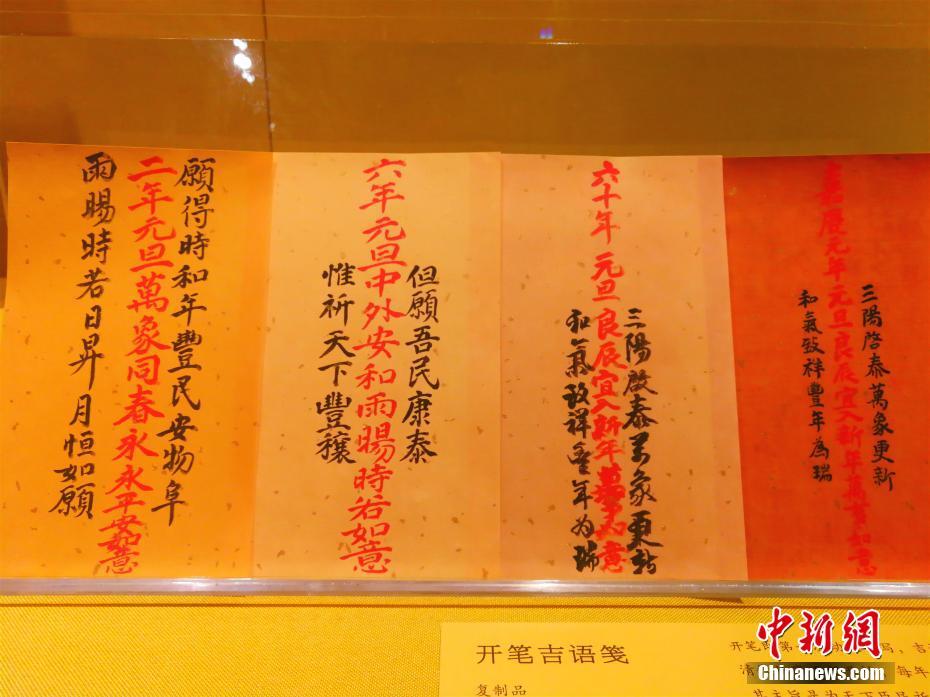 三陽啓泰萬象更新
嘉慶元年元旦良辰宜入新年萬事如意
和氣致祥豐年為瑞
三陽啟泰万象更新
六十年元旦良辰宜入新年萬事如意
和氣致祥豐年为瑞
但願吾民康泰
六年元旦中外安和雨暘時若如意
惟祈天下豐穰
願得時和年豐民安物阜
二年元旦萬象同春永永平安如意
雨暘時若日昇月恒如願
开笔吉语笺
复制品
开笔即第
清
每年
中新网
Chinanews.com